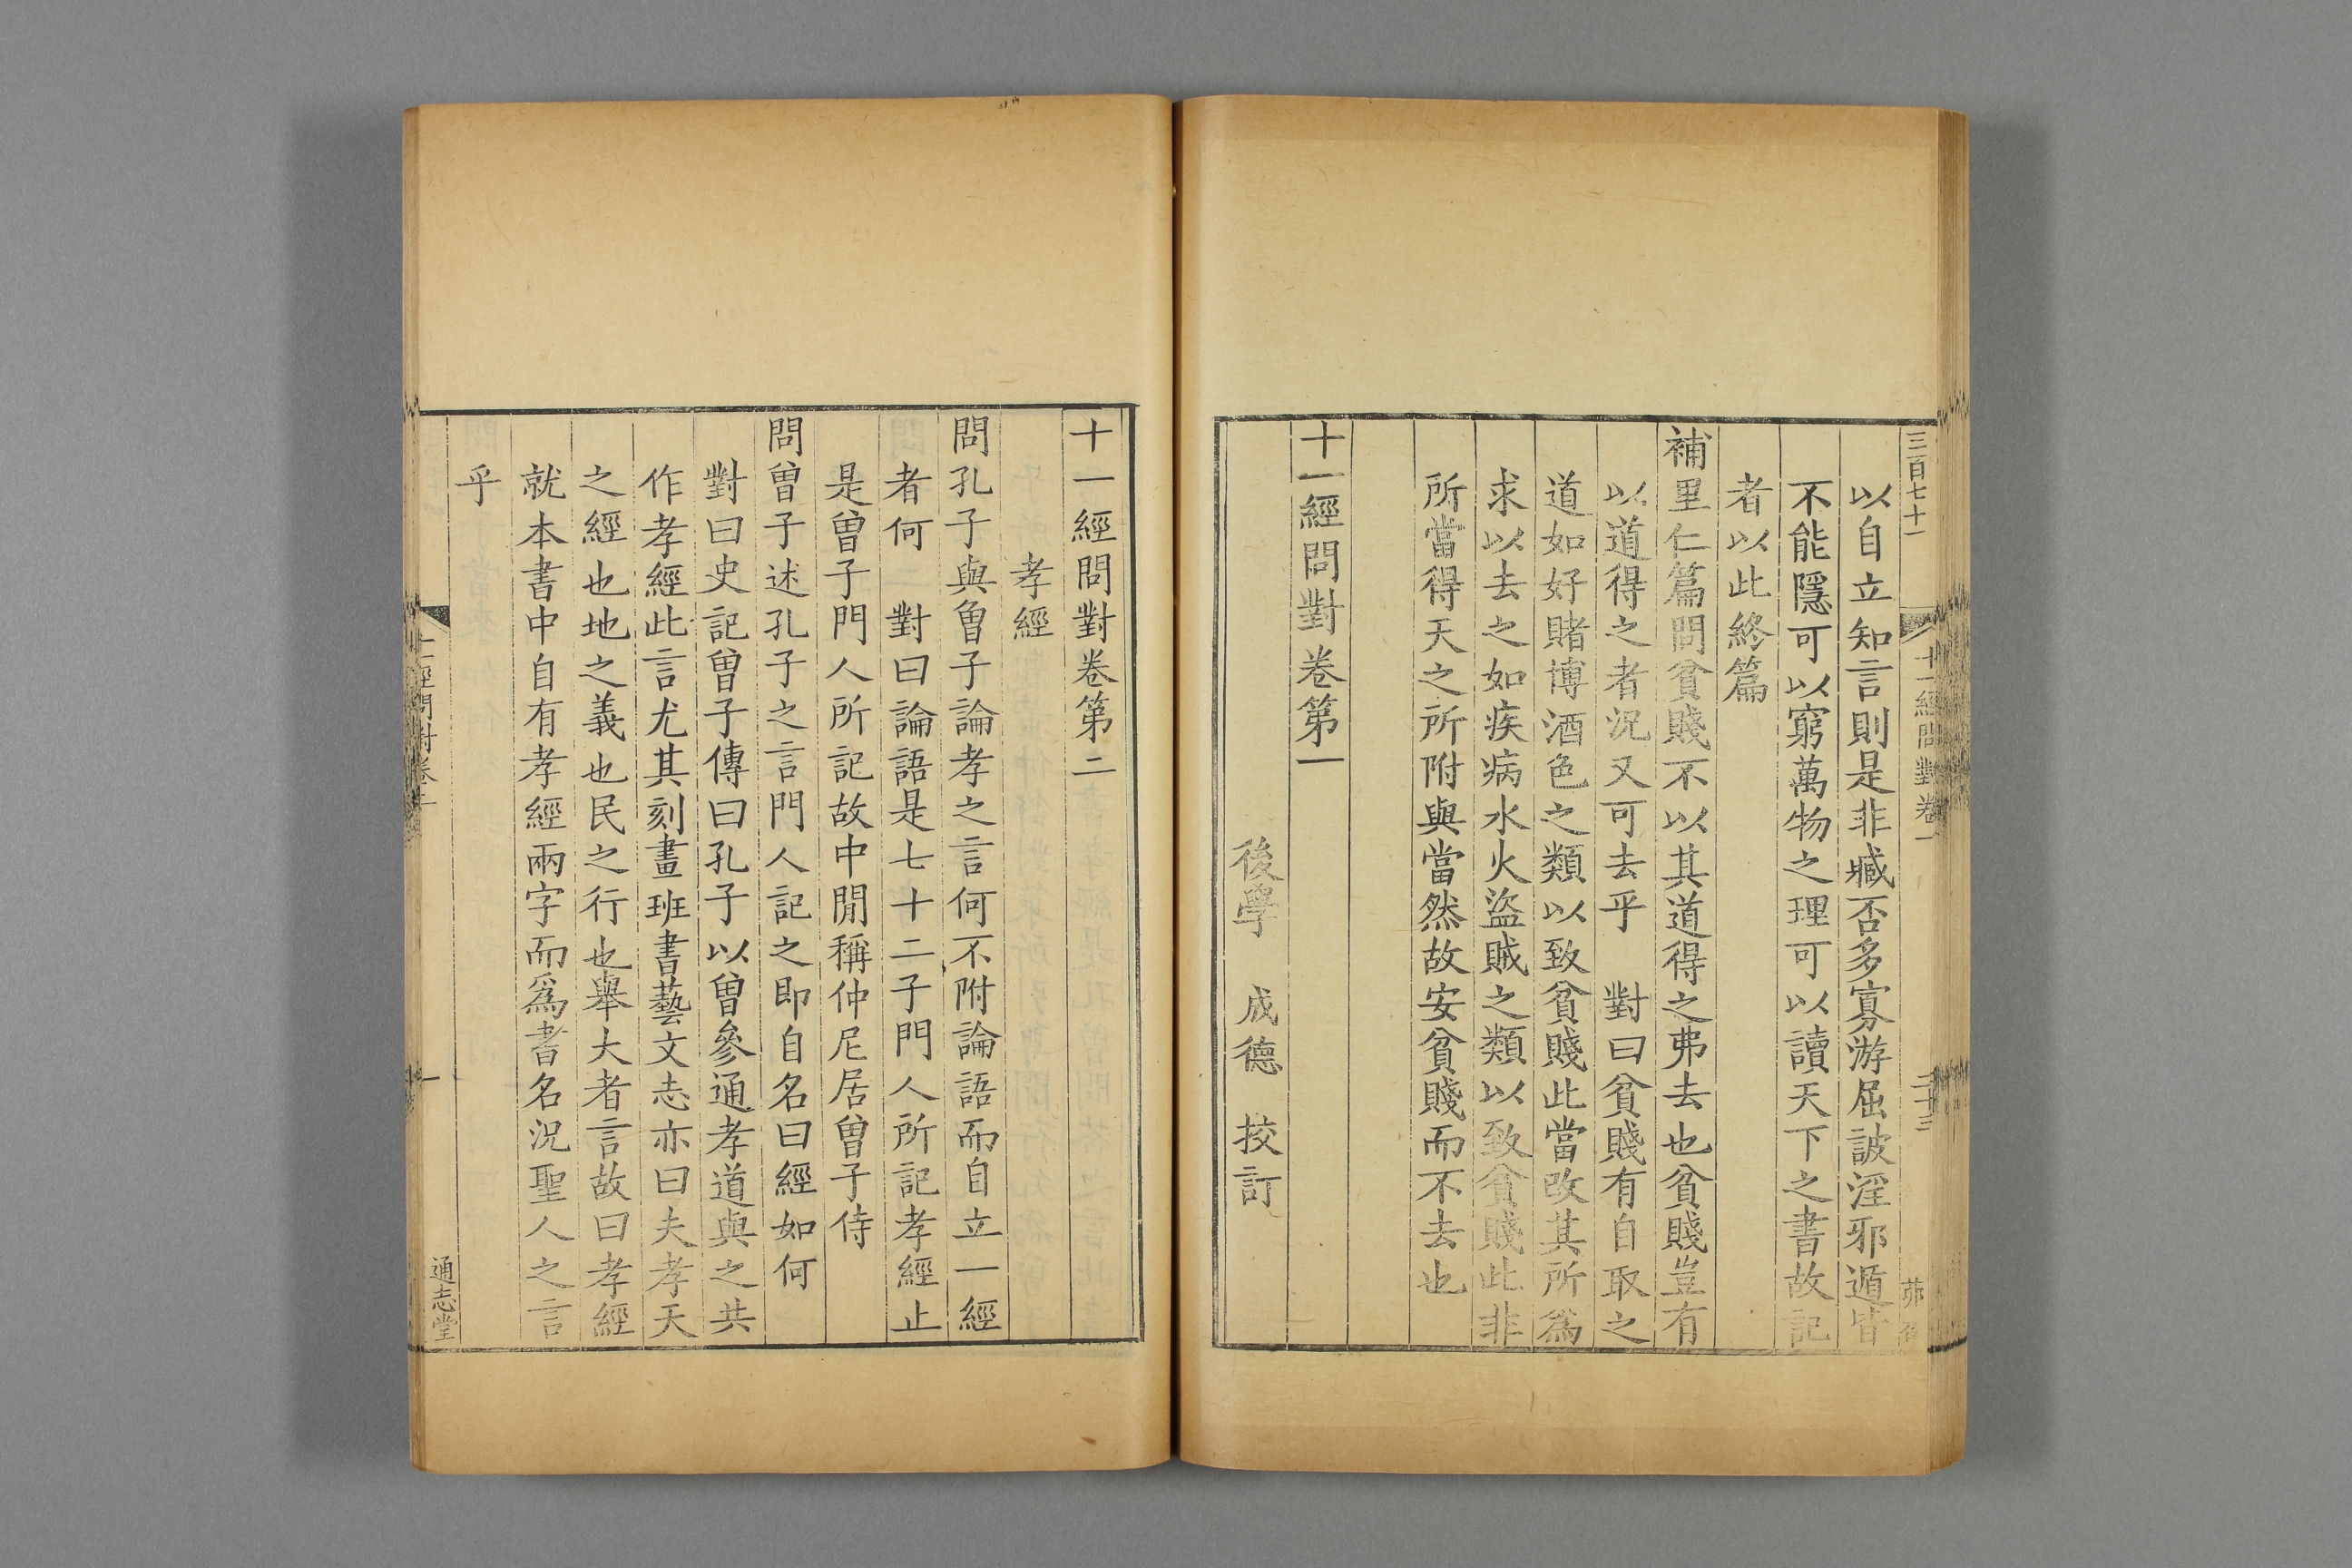 三百七十一
十一經問對卷一
二十三
以自立知言則是非臧否多寡游屈詖淫邪遁皆
不能隱可以窮萬物之理可以讀天下之書故記
者以此終篇
補里仁篇問貧賤不以其道得之弗去也貧賤豈有
以道得之者況又可去乎　對曰貧賤有自取之
道如好賭博酒色之類以致貧賤此當改其所爲
求以去之如疾病水火盜賊之類以致貧賤此非
所當得天之所附與當然故安貧賤而不去也
十一經問對卷第一
後學　成德　挍訂
十一經問對卷第二
孝經
問孔子與曾子論孝之言何不附論語而自立一經
者何　對曰論語是七十二子門人所記孝經止
是曾子門人所記故中閒稱仲尼居曾子侍
問曾子述孔子之言門人記之即自名曰經如何
對曰史記曾子傳曰孔子以曾參通孝道與之共
作孝經此言尤其刻畫班書藝文志亦曰夫孝天
之經也地之義也民之行也舉大者言故曰孝經
就本書中自有孝經兩字而爲書名況聖人之言
乎
十一經問對卷二
一
通志堂